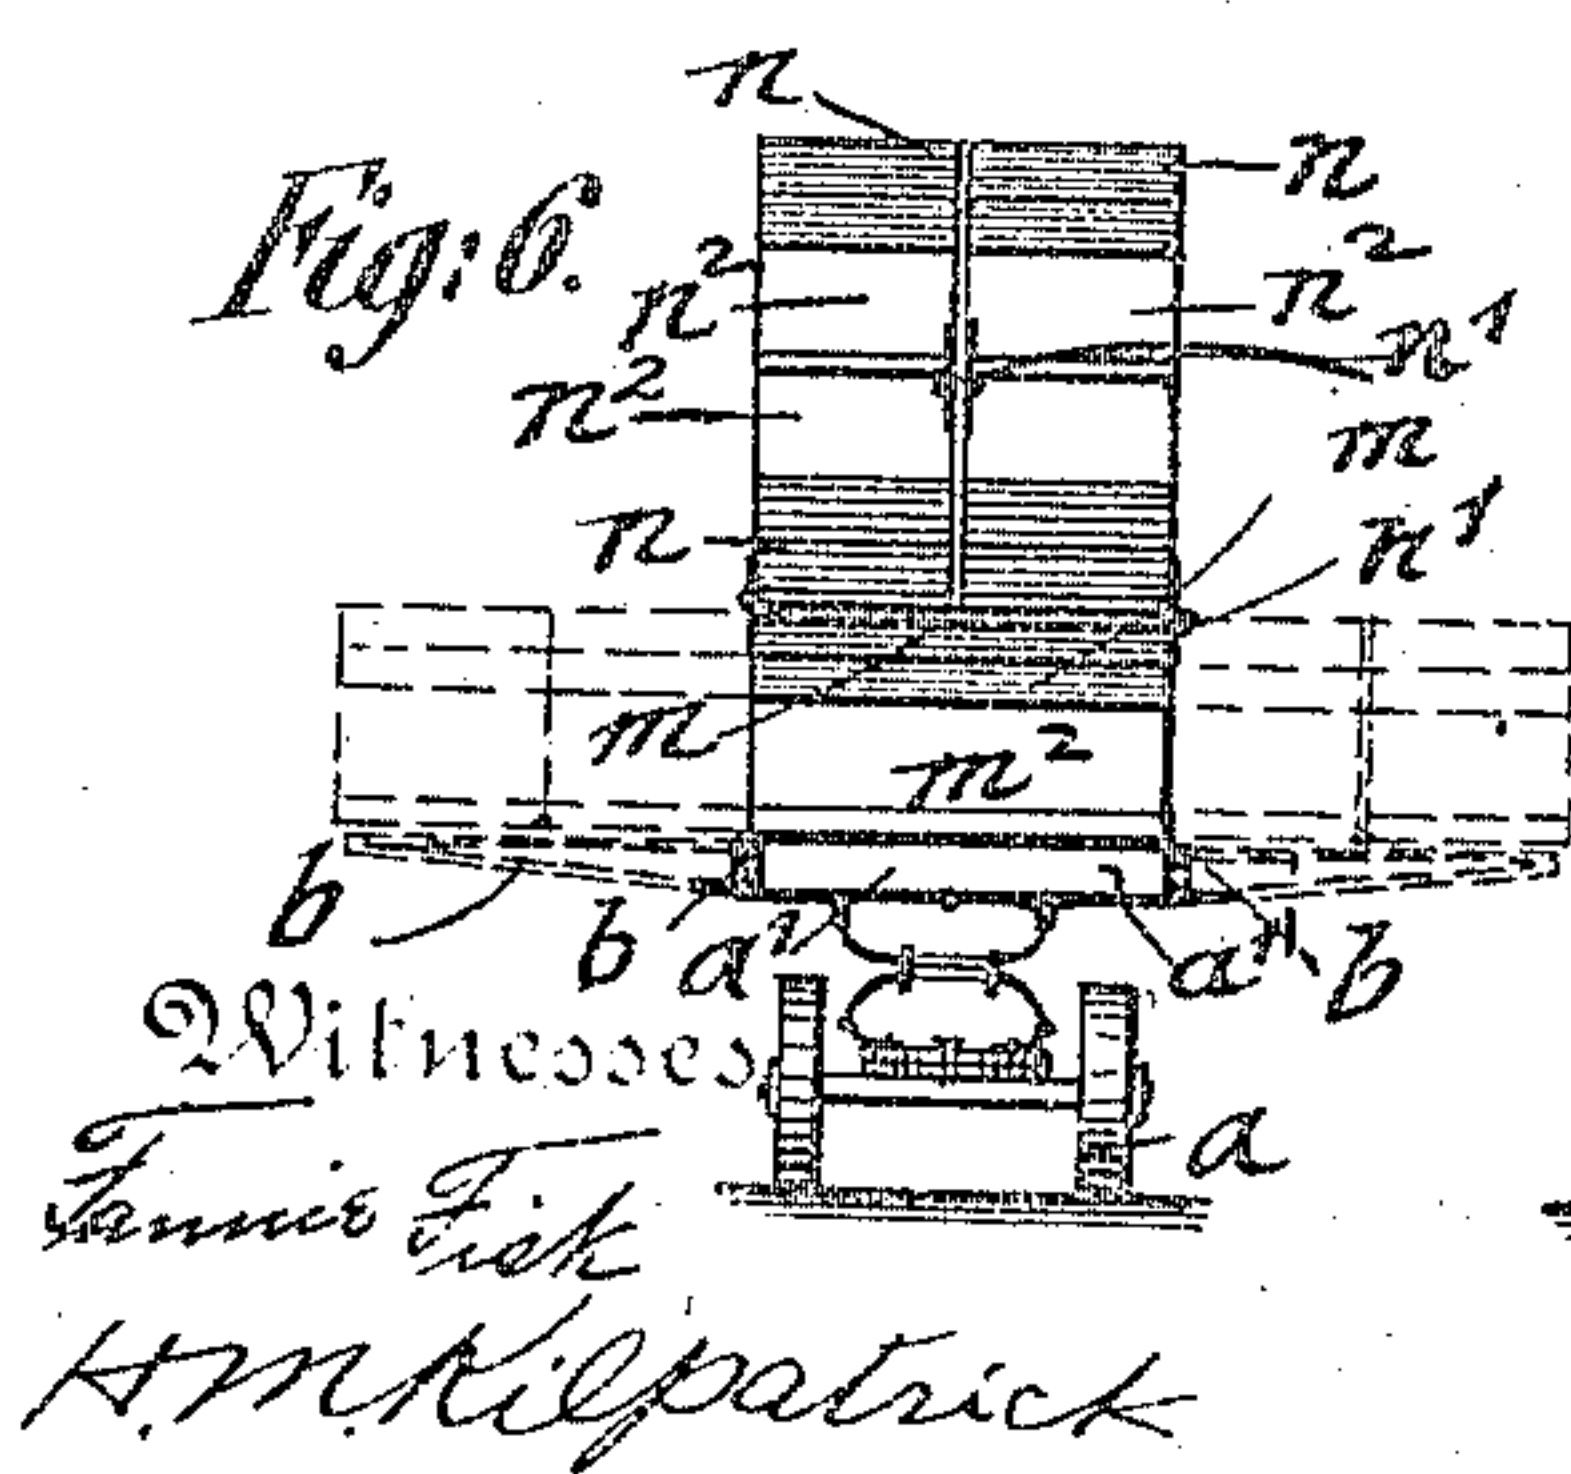 n
Fig: 6.
n
n²
n²
n¹
n²
m
n
n¹
m
m²
b
b
a¹
a¹
b
Witnesses
a
Fannie Fisk
H. M. Kilpatrick